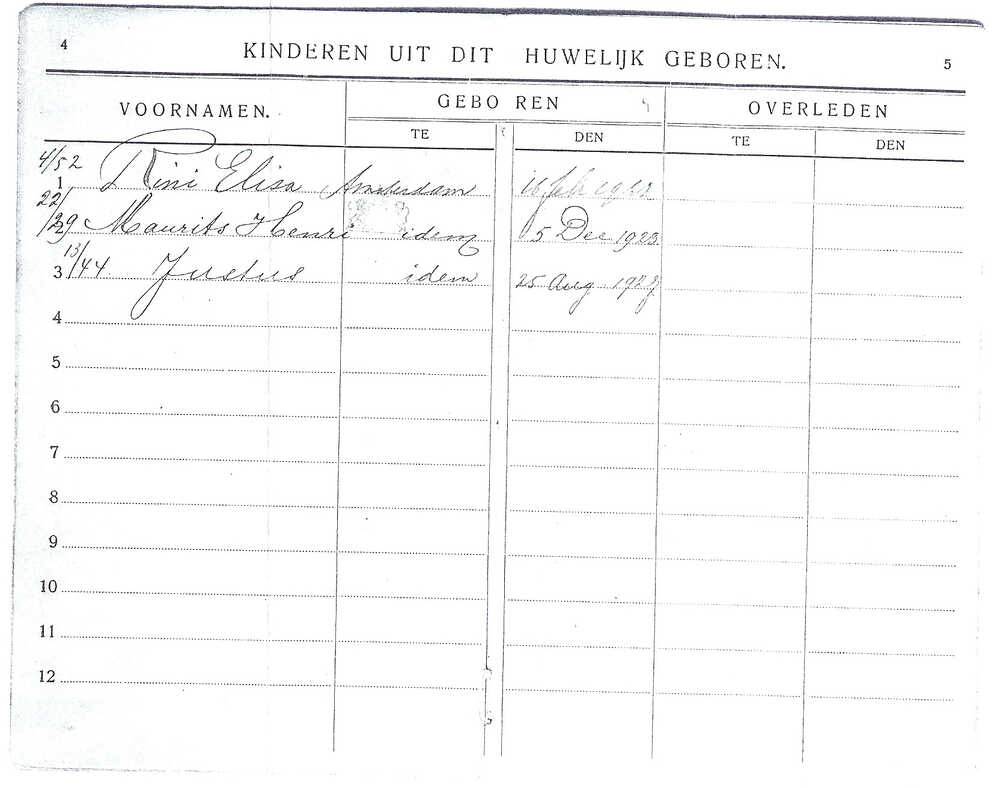 4 KINDEREN UIT DIT HUWELIJK GEBOREN. 5
VOORNAMEN. GEBOREN OVERLEDEN
TE DEN TE DEN
4/52
1 Rini Elisa Amsterdam 1912
22/
2 /29 Maurits Henri idem 5 Dec 1923.
3 13/44 Justus idem 25 Aug 1927
4
5
6
7
8
9
10
11
12